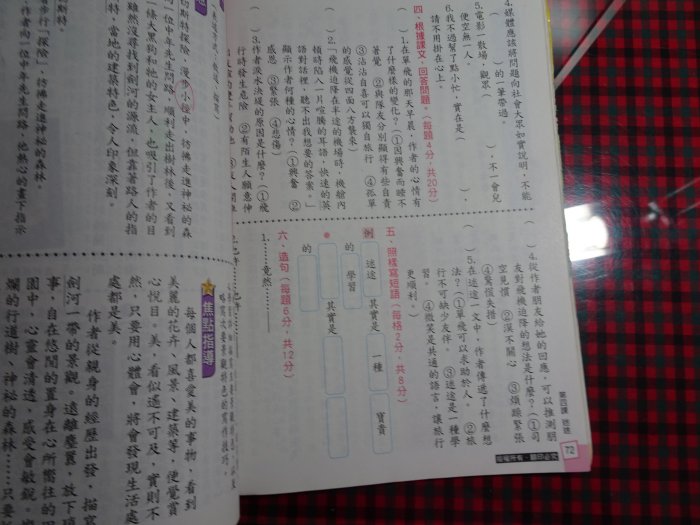 4.媒體應該將問題向社會大眾如實說明，不能
（　　）的一筆帶過。
5.電影一散場，觀眾（　　），不一會兒
便空無一人。
6.我不過幫了點小忙，實在是（　　），
請不用掛在心上。
四、根據課文，回答問題。（每題4分，共20分）
1.在單飛的那天早晨，作者的心情有
了什麼樣的變化？（①因興奮而睡不
著覺　②與隊友分別顯得有些自責
③沾沾自喜可以獨自旅行　④孤單
的感覺從四面八方襲來）
2.「飛機迫降在半途的機場時，機艙內
頓時陷入一片喧騰的耳語，快速的英
語對話裡，聽不出我想要的答案。」
顯示作者何種的心情？（①興奮　②
感恩　③緊張　④悲傷）
3.作者淚水決堤的原因是什麼？（①飛
行時發生危險　②有陌生人願意伸
4.從作者朋友給她的回應，可以推測朋
友對飛機迫降的想法是什麼？（①司
空見慣　②漠不關心　③頻頻緊張
④驚慌失措）
5.在迷途一文中，作者傳達了什麼想
法？（①單飛可以來助於人。②旅
行不可缺少友伴。③迷途是一種學
習。④微笑是共通的語言，讓旅行
更順利。）
五、照樣寫短語（每格2分，共8分）
例　迷途　其實是　一種　寶貴
的　學習
其實是
的
六、造句（每題6分，共12分）
1.……竟然……
第四課　迷途
72
版權所有．翻印必究
切斯特探險，漫步途中，彷彿走進神祕的森
一位中年先生問路，順利走出樹林後，又看到
一條大黑狗和牠的主人，也吸引了作者的目
雖然沒尋找到劍河的源流，但靠著路人的指
特，當地的建築特色，令人印象深刻。
斯特。
步行「探險」，彷彿走進神祕的森林。
作者向一位中年先生問路，他熱心的畫下指示
焦點指導
每個人都喜愛美的事物，看到
美麗的花卉、風景、建築等，便覺賞
心悅目。美，看似遙不可及，實則不
然，只要用心體會，將會發現生活處
處都是美。
作者從親身的經歷出發，描寫
劍河一帶的景觀。遠離塵囂，放下瑣
事，自在悠閒的置身在心所嚮往的田
園中，心靈會清透，感受會敏銳。
爛的行道樹、神祕的森林……只要